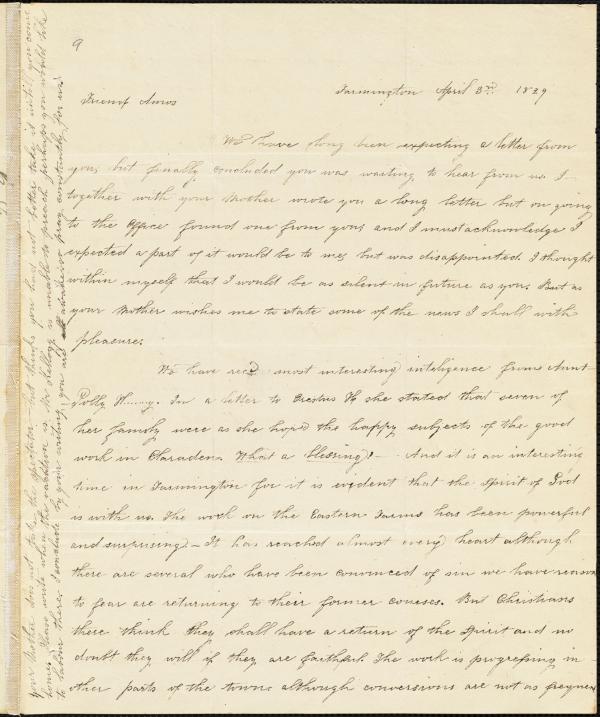 9
Farmington April 3rd 1829
Friend Amos
We have long been expecting a letter from
you, but finally concluded you was waiting to hear from us. I
together with your Mother wrote you a long letter but on going
to the Office found one from you, and I must acknowledge I
expected a part of it would be to me, but was disappointed. I thought
within myself that I would be as silent in future as you. But as
your Mother wishes me to state some of the news I shall with
pleasure.
We have recd most interesting inteligence from Aunt
Polly. In a letter to Erastus H, she stated that seven of
her family were as she hoped the happy subjects of the good
work in Claraden. What a blessing!— And it is an interesting
time in Farmington for it is evident that the Spirit of God
is with us. The work on the Eastern Farms has been powerful
and surprising — It has reached almost every heart although
there are several who have been convinced of sin we have reason
to fear are returning to their former courses. But Christians
there think they shall have a return of the Spirit and no
doubt they will if they are faithful. The work is progressing in
other parts of the town although conversions are not as frequen
your Mother did not take the spectator, but thinks you had not better take it until you come
home. Please write when the vacation is. Mr Kellogg is unable to preach, perhaps you would like
to labour there. I conclude by your writing, you are all pray constantly for us.